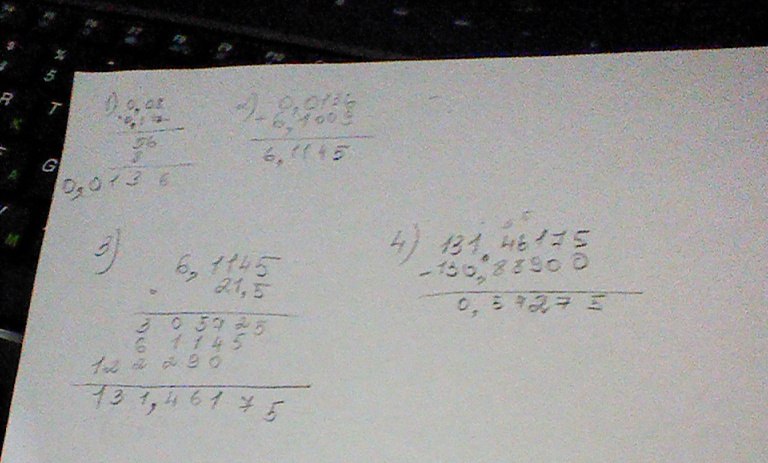 1) 0,08
0,17
56
8
0,0136
2) 0,0136
6,1009
6,1145
3)
6,1145
· 21,5
305725
61145
122290
131,46175
4) 131,46175
-130,88900
0,57275